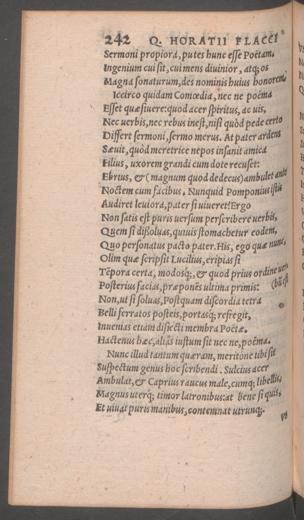 242 Q. HORATII FLACCI
Sermoni propiora, putes hunc esse Poëtam.
Ingenium cui sit, cui mens diuinior, atq; os
Magna sonaturum, des nominis huius honorem.
Iccirco quidam Comœdia, nec ne poëma
Esset quæsiuere: quod acer spiritus, ac uis,
Nec uerbis, nec rebus inest, nisi quòd pede certo
Differt sermoni, sermo merus. At pater ardens
Sæuit, quòd meretrice nepos insanit amica
Filius, uxorem grandi cum dote recuset:
Ebrius, & (magnum quod dedecus) ambulet ante
Noctem cum facibus. Nunquid Pomponius istis
Audiret leuiora, pater si uiueret? Ergo
Non satis est puris uersum perscribere uerbis,
Quem si dissoluas, quiuis stomachetur eodem,
Quo personatus pacto pater. His, ego quæ nunc,
Olim quæ scripsit Lucilius, eripias si
Tēpora certa, modosq;, & quod prius ordine uer
Posterius facias, præponēs ultima primis: (bū est
Non, ut si soluas, Postquam discordia tetra
Belli ferratos posteis, portasq; refregit,
Inuenias etiam disiecti membra Poëtæ.
Hactenus hæc, aliàs iustum sit nec ne, poëma.
Nunc illud tantum quæram, meritóne tibi sit
Suspectum genus hoc scribendi. Sulcius acer
Ambulat, & Caprius rauci male, cumq; libellis,
Magnus uterq; timor latronibus: at bene si quis,
Et uiuat puris manibus, contemnat utrunq;.